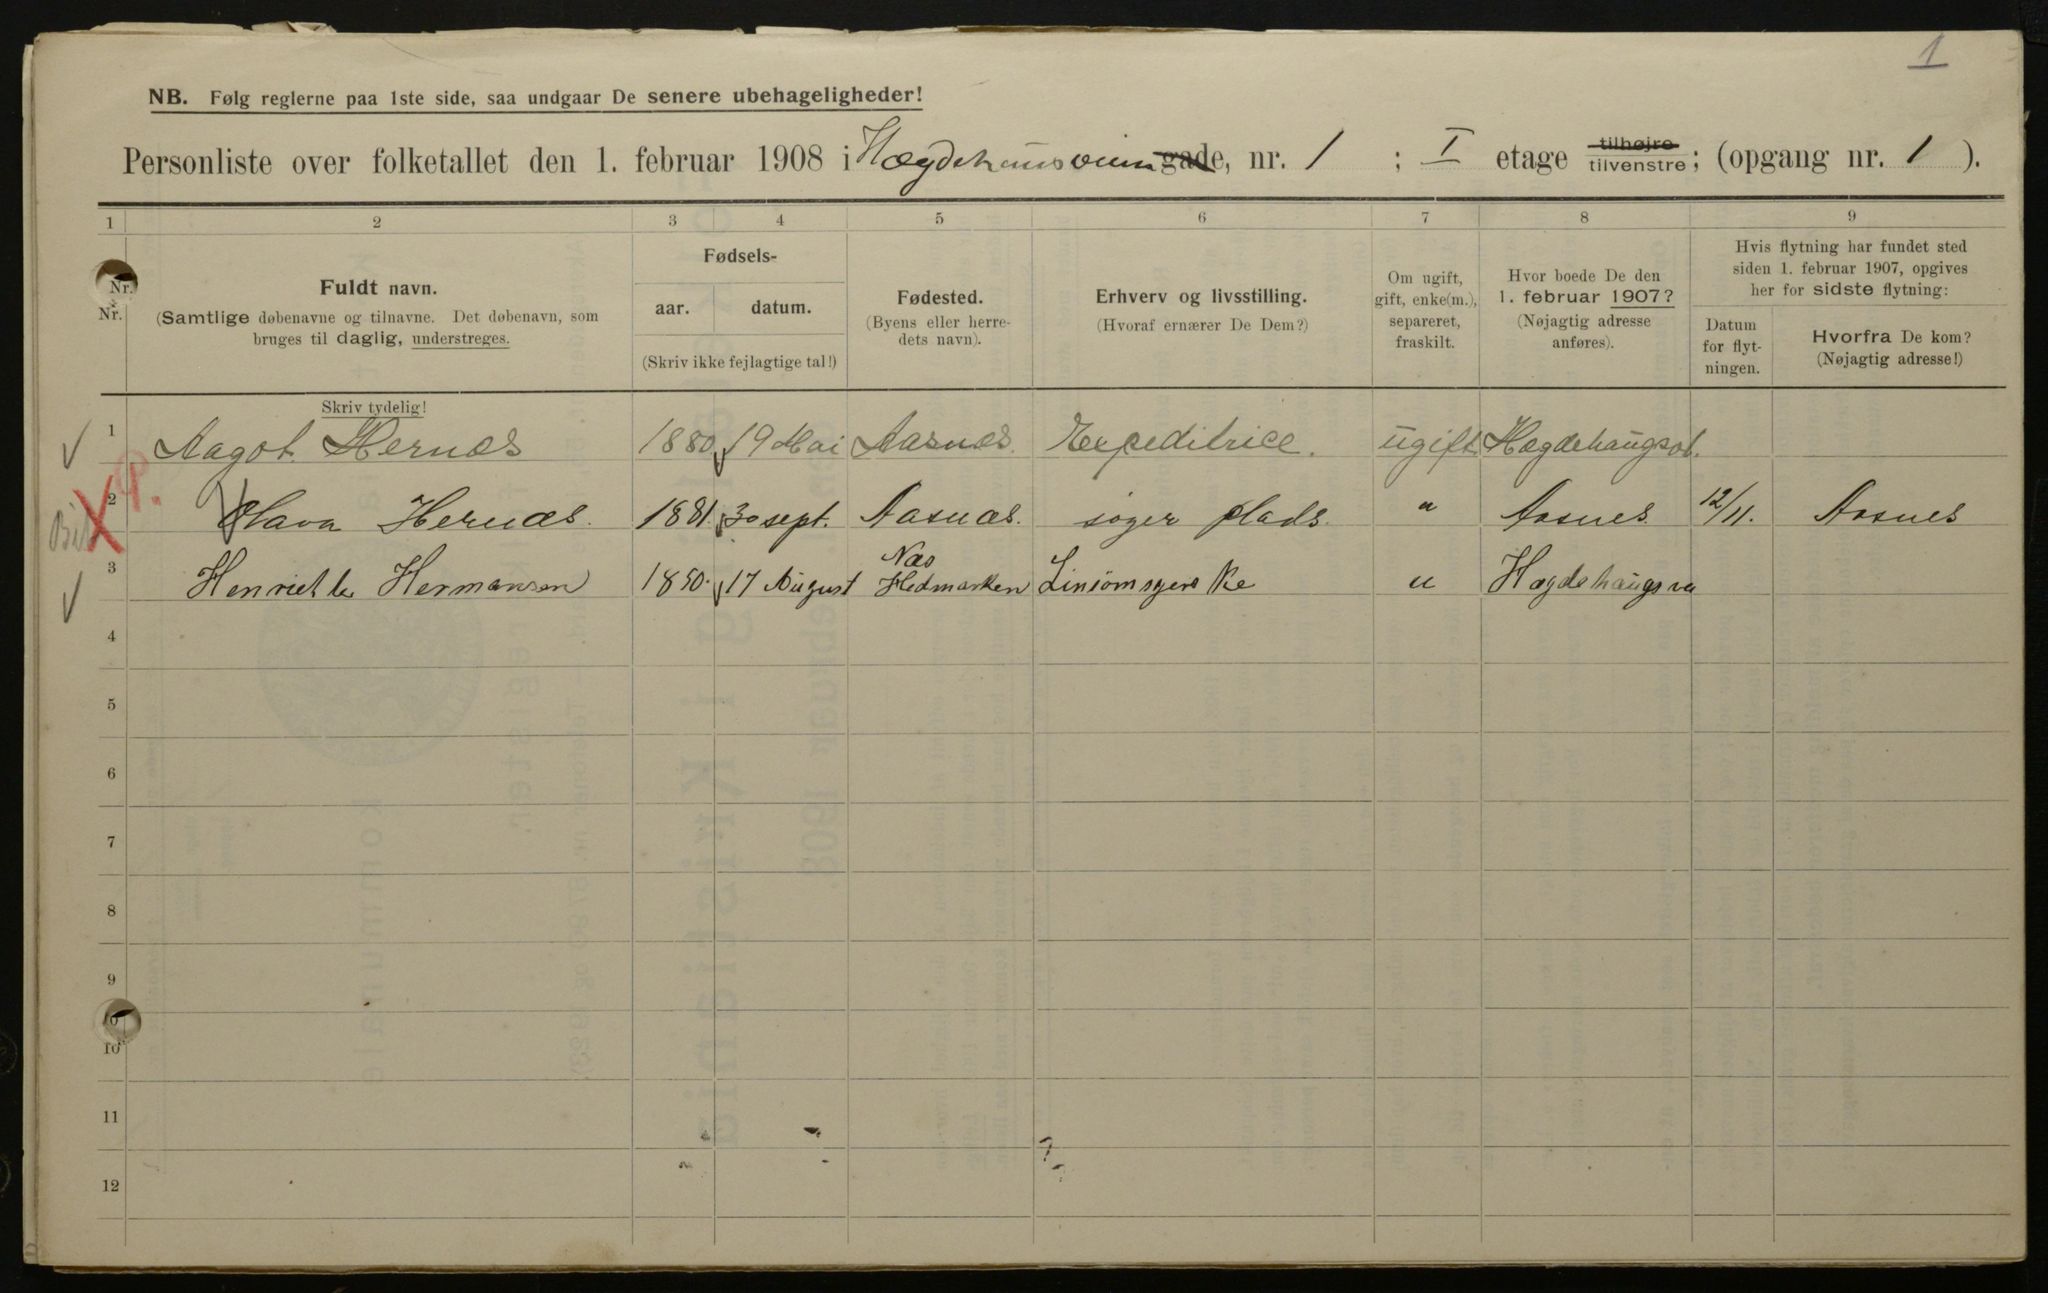 1
NB. Følg reglerne paa 1ste side, saa undgaar De senere ubehageligheder!
Personliste over folketallet den 1. februar 1908 i Hægdehausveien gade, nr. 1 ; I etage tilhøjre tilvenstre; (opgang nr. 1 ).
1 2 3 4 5 6 7 8 9
Nr. Nr.
Fuldt navn.
(Samtlige døbenavne og tilnavne. Det døbenavn, som
bruges til daglig, understreges.
Skriv tydelig!
Fødsels-
aar. datum.
(Skriv ikke fejlagtige tal!)
Fødested.
(Byens eller herre-
dets navn).
Erhverv og livsstilling.
(Hvoraf ernærer De Dem?)
Om ugift,
gift, enke(m.),
separeret,
fraskilt.
Hvor boede De den
1. februar 1907?
(Nøjagtig adresse
anføres).
Hvis flytning har fundet sted
siden 1. februar 1907, opgives
her for sidste flytning:
Datum
for flyt-
ningen.
Hvorfra De kom?
(Nøjagtig adresse!)
1 Aagot Hernæs 1880 19 Mai Aasnæs. Expeditrice. ugift Hægdehaugsv.
2 Hernæs. 1881. 30 sept. Aasnæs. søger plads. " Aasnes. 12/11. Aasnes
3 Henriette Hermansen 1850. 17 August Næs Hedmarken Linsömsyerske " Hægdehaugsve
4
5
6
7
8
9
10
10
11
12